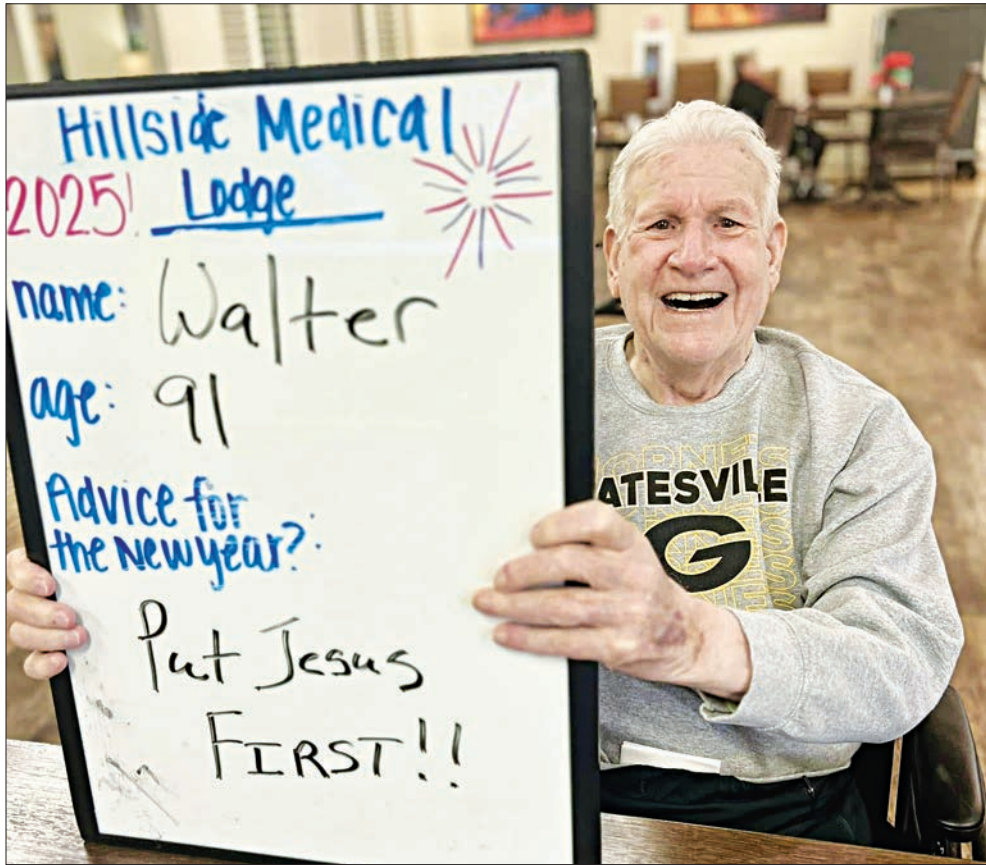 Hillside Medical
2025! Lodge
name: Walter
age: 91
Advice for
the New year?:
Put Jesus
FIRST!!
ATESVILLE
G